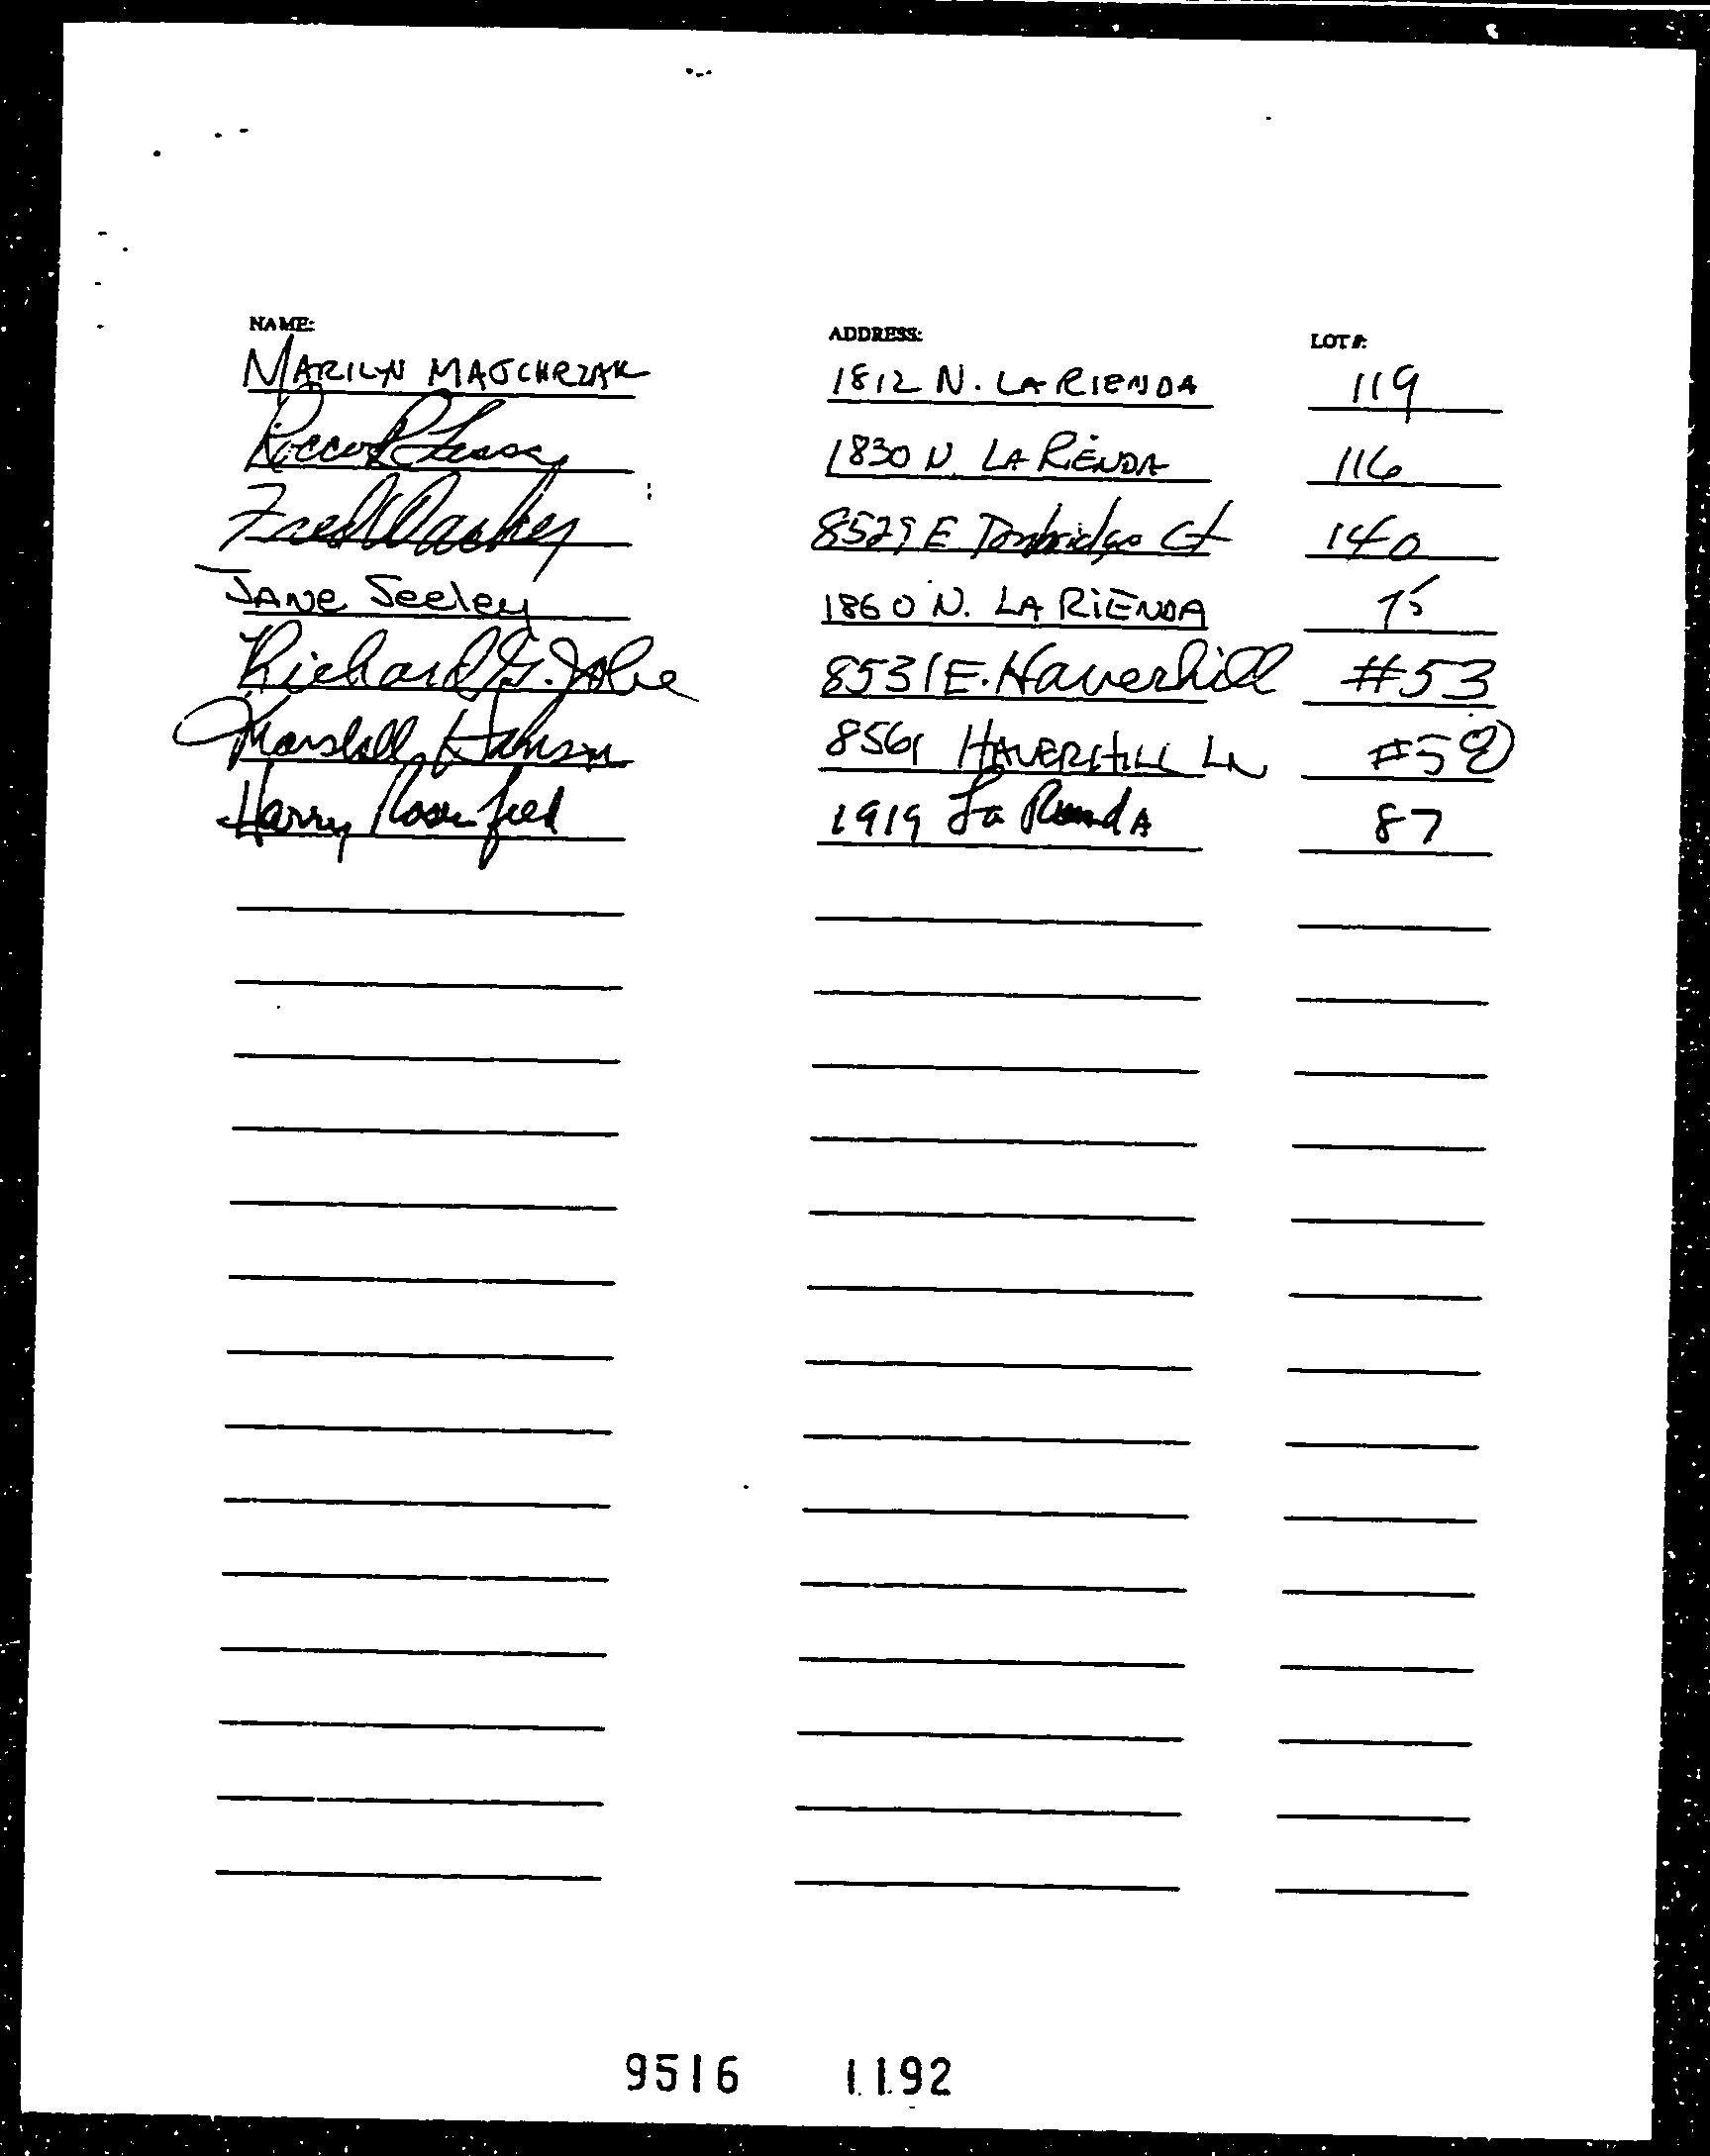 NAME: ADDRESS: LOT #:
MARILYN MAJCHRZAK 1812 N. LA RIENDA 119
1830 N. LA RIENDA 116
Fred 8529 E Tonbridge Ct 140
JANE Seeley 1860 N. LA RIENDA 75
Richard G. Jobe 8531 E. Haverhill #53
Marshall 8561 HAVERHILL LN
Harry Rosenfeld 1919 La Rienda 87
9516 1192